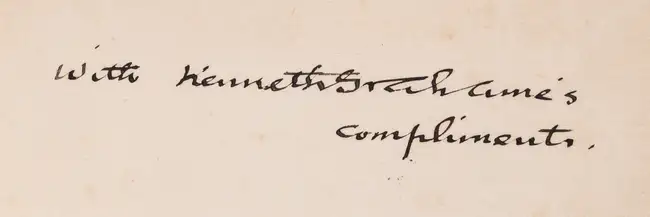 With Kenneth Grahame's
compliments.